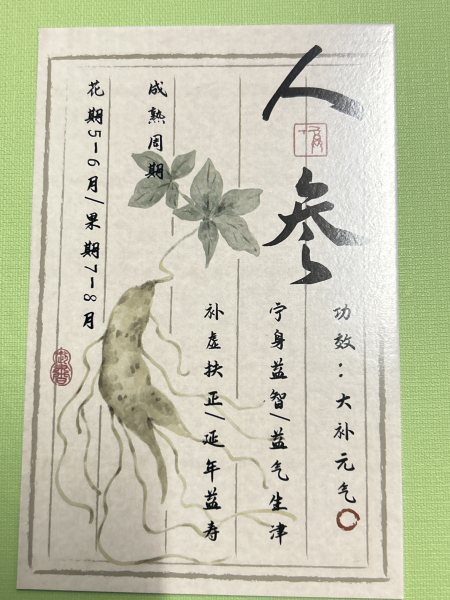 人参
功效：大补元气
宁身益智/益气生津
补虚扶正/延年益寿
成熟周期
花期5-6月/果期7-8月